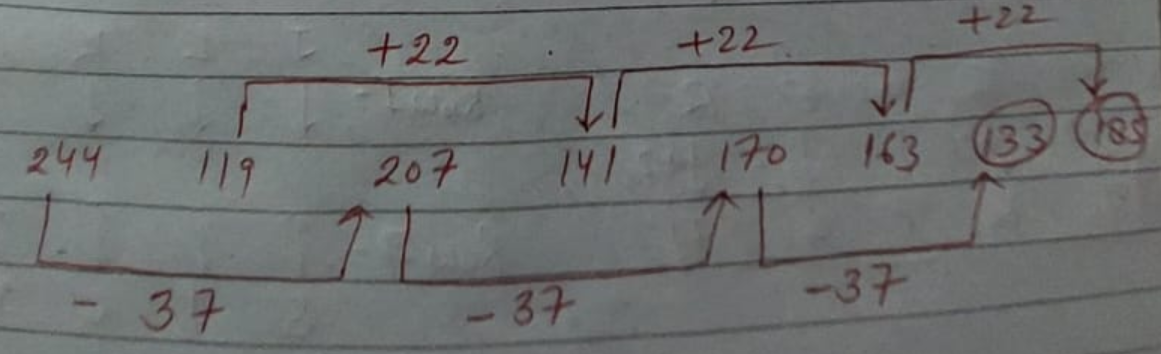 +22 +22 +22
244 119 207 141 170 163 133 185
- 37 -37 -37